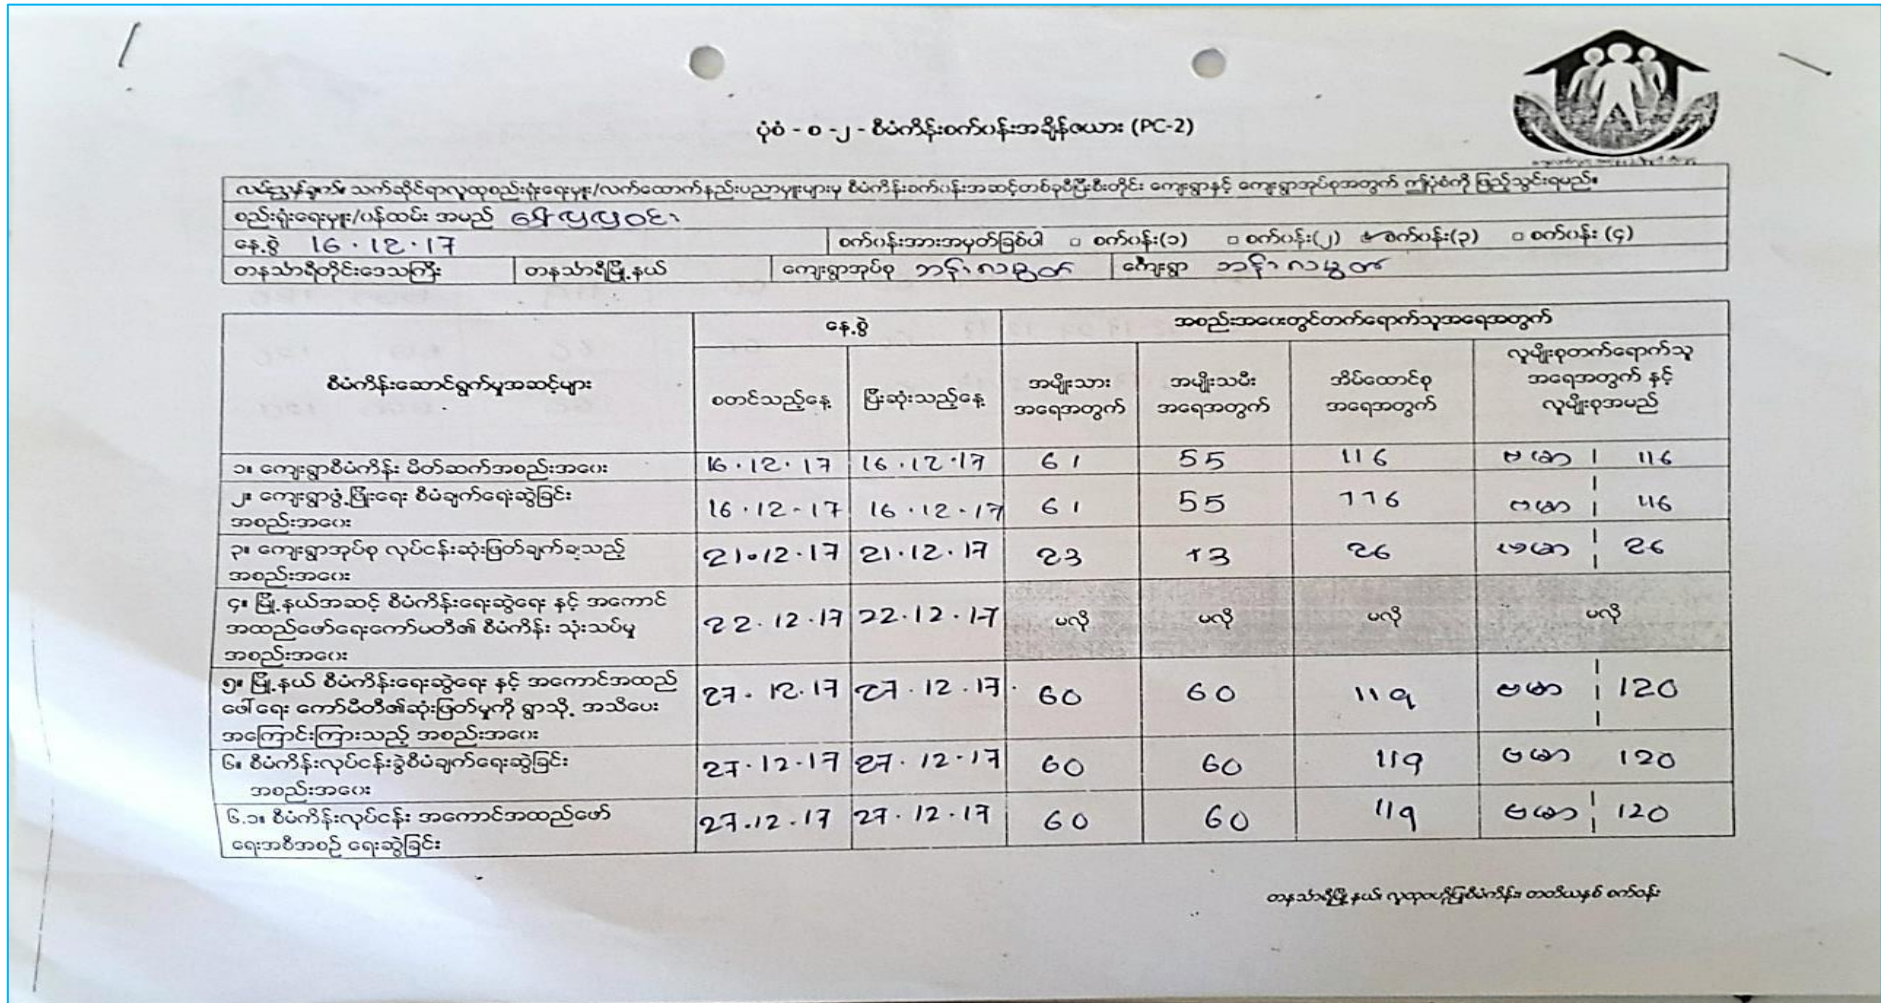 ပုံစံ - စ -၂ - စီမံကိန်းစက်ဝန်းအချိန်ဇယား (PC-2)
လမ်းညွှန်ချက်။ သက်ဆိုင်ရာလူထုစည်းရုံးရေးမှူး/လက်ထောက်နည်းပညာမှူးများမှ စီမံကိန်းစက်ဝန်းအဆင့်တစ်ခုပြီးစီးတိုင်း ကျေးရွာနှင့် ကျေးရွာအုပ်စုအတွက် ဤပုံစံကို ဖြည့်သွင်းရမည်။
စည်းရုံးရေးမှူး/ဝန်ထမ်း အမည်
နေ့စွဲ 16.12.17 စက်ဝန်းအားအမှတ်ခြစ်ပါ □ စက်ဝန်း(၁) □ စက်ဝန်း(၂) စက်ဝန်း(၃) □ စက်ဝန်း (၄)
တနင်္သာရီတိုင်းဒေသကြီး တနင်္သာရီမြို့နယ် ကျေးရွာအုပ်စု ကျေးရွာ
နေ့စွဲ အစည်းအဝေးတွင်တက်ရောက်သူအရေအတွက်
စီမံကိန်းဆောင်ရွက်မှုအဆင့်များ စတင်သည့်နေ့ ပြီးဆုံးသည့်နေ့ အမျိုးသား အရေအတွက် အမျိုးသမီး အရေအတွက် အိမ်ထောင်စု အရေအတွက် လူမျိုးစုတက်ရောက်သူ အရေအတွက် နှင့် လူမျိုးစုအမည်
၁။ ကျေးရွာစီမံကိန်း မိတ်ဆက်အစည်းအဝေး 16.12.17 16.12.17 61 55 116 ဗမာ 116
၂။ ကျေးရွာဖွံ့ဖြိုးရေး စီမံချက်ရေးဆွဲခြင်း
အစည်းအဝေး 16.12.17 16.12.17 61 55 116 ဗမာ 116
၃။ ကျေးရွာအုပ်စု လုပ်ငန်းဆုံးဖြတ်ချက်ချသည့်
အစည်းအဝေး 21.12.17 21.12.17 23 13 26 ဗမာ 26
၄။ မြို့နယ်အဆင့် စီမံကိန်းရေးဆွဲရေး နှင့် အကောင်
အထည်ဖော်ရေးကော်မတီ၏ စီမံကိန်း သုံးသပ်မှု
အစည်းအဝေး 22.12.17 22.12.17 မလို မလို မလို မလို
၅။ မြို့နယ် စီမံကိန်းရေးဆွဲရေး နှင့် အကောင်အထည်
ဖေါ်ရေး ကော်မီတီ၏ဆုံးဖြတ်မှုကို ရွာသို့ အသိပေး
အကြောင်းကြားသည့် အစည်းအဝေး 27.12.17 27.12.17 60 60 119 ဗမာ 120
၆။ စီမံကိန်းလုပ်ငန်းခွဲစီမံချက်ရေးဆွဲခြင်း
အစည်းအဝေး 27.12.17 27.12.17 60 60 119 ဗမာ 120
၆.၁။ စီမံကိန်းလုပ်ငန်း အကောင်အထည်ဖော်
ရေးအစီအစဉ် ရေးဆွဲခြင်း 27.12.17 27.12.17 60 60 119 ဗမာ 120
တနင်္သာရီမြို့နယ်၊ လူထုဗဟိုပြုစီမံကိန်း၊ တတိယနှစ် စက်ဝန်း